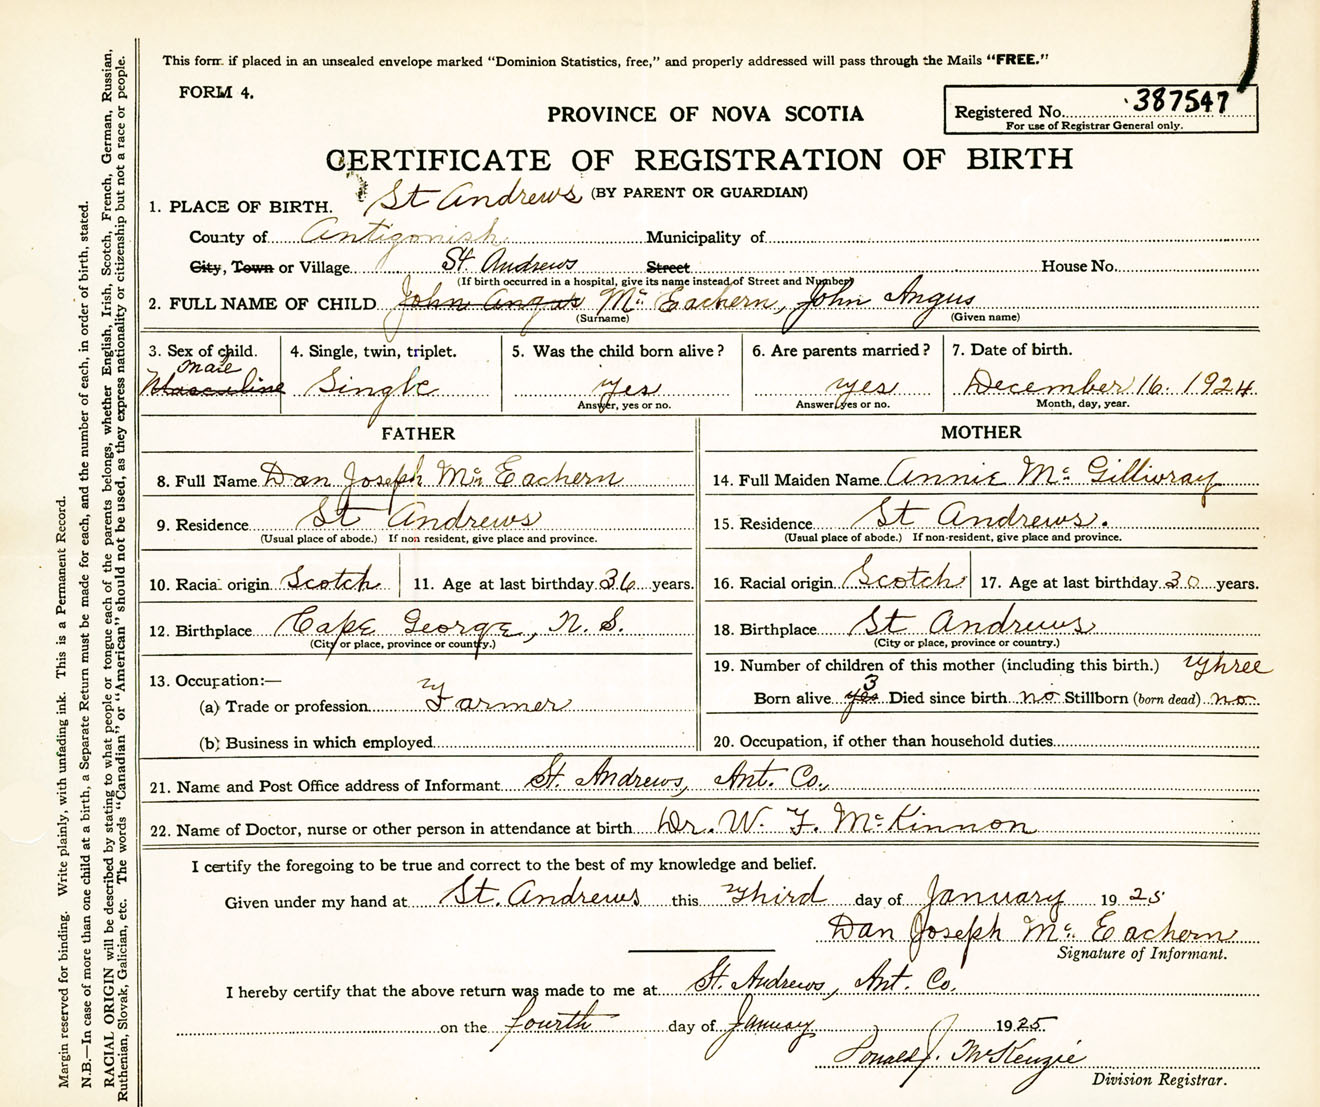 This form if placed in an unsealed envelope marked "Dominion Statistics, free," and properly addressed will pass through the Mails "FREE."
FORM 4.
PROVINCE OF NOVA SCOTIA
Registered No. 387547
For use of Registrar General only.
CERTIFICATE OF REGISTRATION OF BIRTH
(BY PARENT OR GUARDIAN)
1. PLACE OF BIRTH. St Andrews
County of Antigonish Municipality of
City, Town or Village St. Andrews Street House No.
(If birth occurred in a hospital, give its name instead of Street and Number)
2. FULL NAME OF CHILD John Angus Mc Eachern, John Angus
(Surname) (Given name)
3. Sex of child. 4. Single, twin, triplet. 5. Was the child born alive? 6. Are parents married? 7. Date of birth.
male
Masculine Single yes yes December 16. 1924
Answer, yes or no. Answer, yes or no. Month, day, year.
FATHER
8. Full Name Dan Joseph Mc Eachern
9. Residence St Andrews
(Usual place of abode.) If non resident, give place and province.
10. Racial origin Scotch 11. Age at last birthday 36 years.
12. Birthplace Cape George, N. S.
(City or place, province or country.)
13. Occupation:—
(a) Trade or profession Farmer
(b) Business in which employed
MOTHER
14. Full Maiden Name Annie Mc Gillivray
15. Residence St Andrews.
(Usual place of abode.) If non-resident, give place and province.
16. Racial origin Scotch 17. Age at last birthday 30 years.
18. Birthplace St Andrews
(City or place, province or country.)
19. Number of children of this mother (including this birth.) Three
Born alive yes 3 Died since birth no Stillborn (born dead) no
20. Occupation, if other than household duties
21. Name and Post Office address of Informant St. Andrews, Ant. Co.
22. Name of Doctor, nurse or other person in attendance at birth Dr. W. F. McKinnon
I certify the foregoing to be true and correct to the best of my knowledge and belief.
Given under my hand at St. Andrews this Third day of January 1925
Dan Joseph Mc. Eachern
Signature of Informant.
I hereby certify that the above return was made to me at St. Andrews, Ant. Co.
on the fourth day of January 1925
Donald J. McKenzie
Division Registrar.
Margin reserved for binding. Write plainly, with unfading ink. This is a Permanent Record.
N.B.—In case of more than one child at a birth, a Separate Return must be made for each, and the number of each, in order of birth, stated.
RACIAL ORIGIN will be described by stating to what people or tongue each of the parents belongs, whether English, Irish, Scotch, French, German, Russian,
Ruthenian, Slovak, Galician, etc. The words "Canadian" or "American" should not be used, as they express nationality or citizenship but not a race or people.